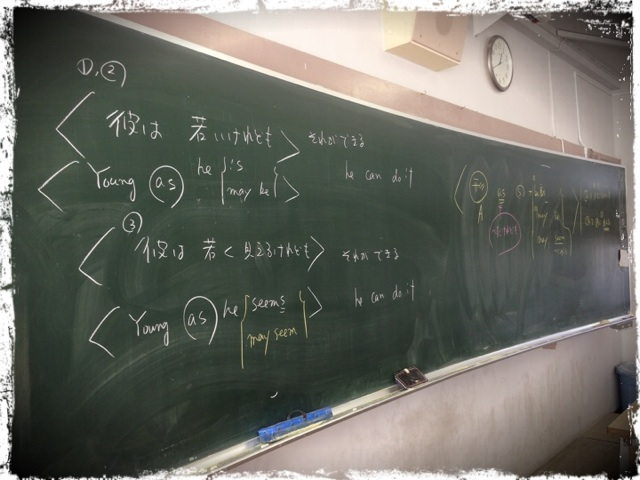 D, ②
〈彼は 若いけれども〉 それができる
〈Young as he {is / may be}〉 he can do it
③
〈彼は 若く見えるけれども〉 それができる
〈Young as he {seems / may seem}〉 he can do it
as
A
may
may